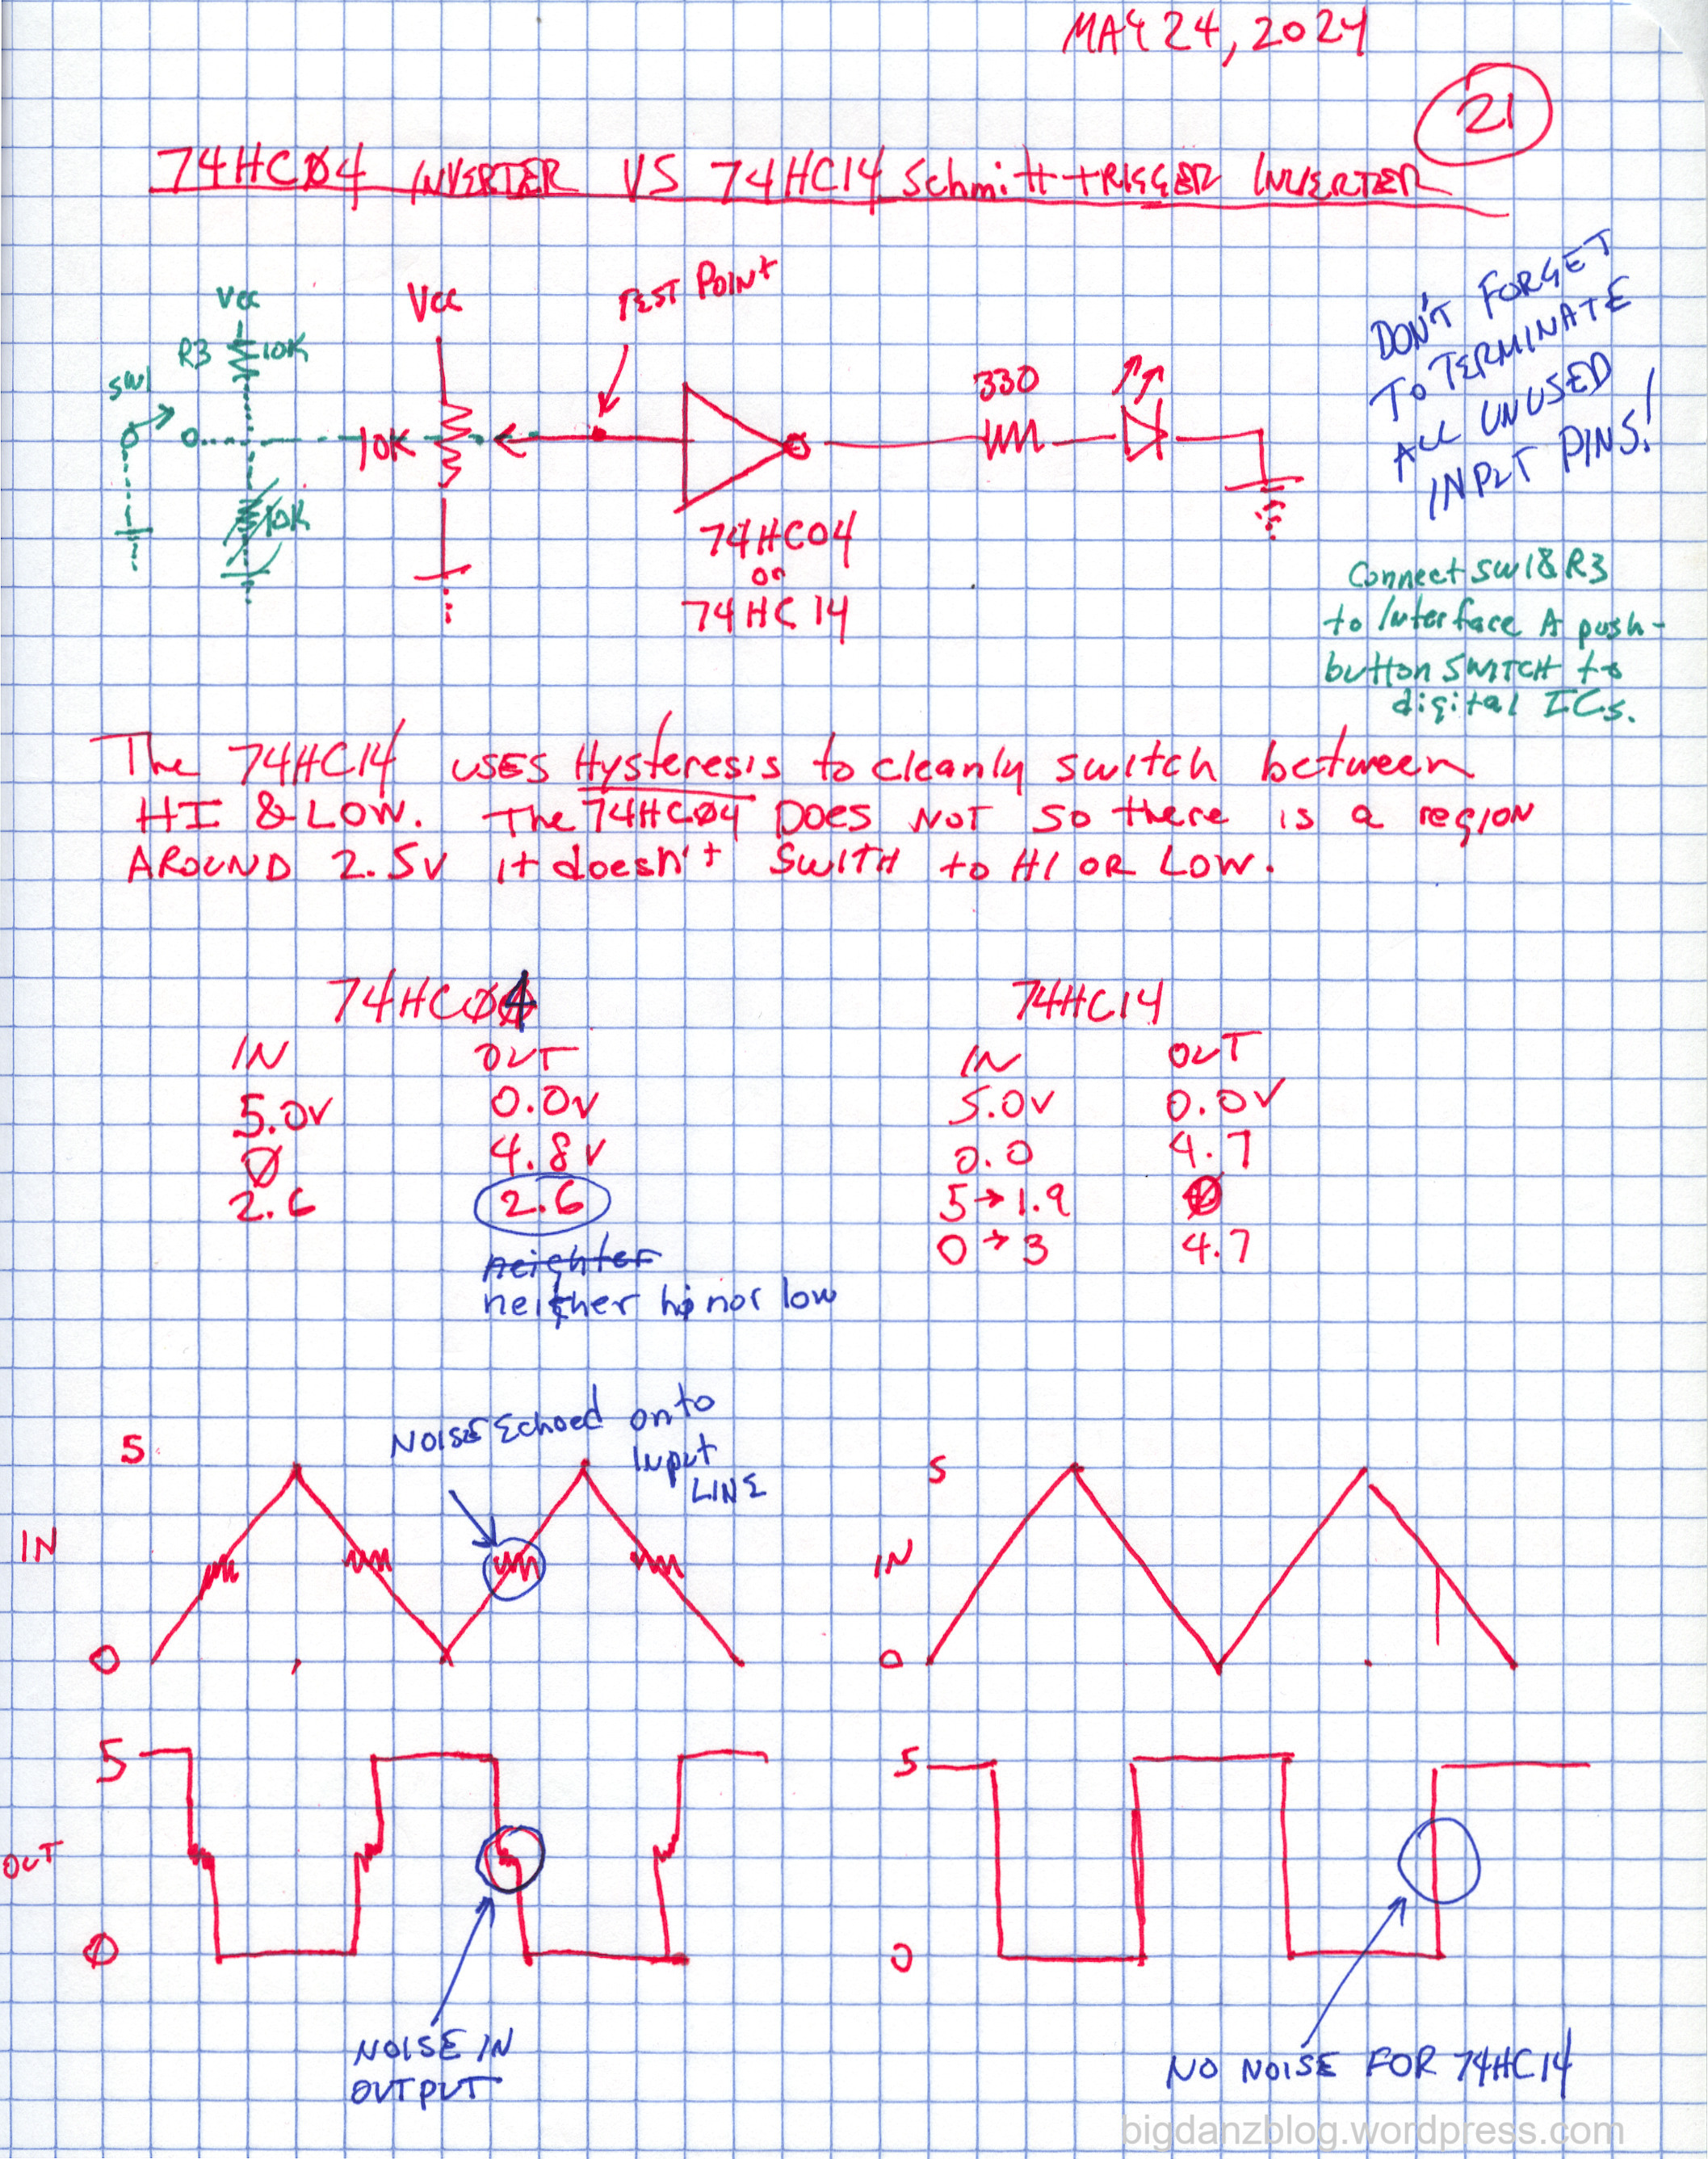 MAY 24, 2024
21
74HCØ4 INVERTER VS 74HC14 Schmitt TRIGGER INVERTER
DON'T FORGET
TO TERMINATE
ALL UNUSED
INPUT PINS!
Vcc
R3 10K
SW1
10K
Vcc
10K
TEST POINT
74HC04
or
74HC14
330
Connect SW1 & R3
to Interface A push-
button SWITCH to
digital ICs.
The 74HC14 USES Hysteresis to cleanly switch between
HI & LOW. The 74HCØ4 DOES NOT so there is a region
AROUND 2.5V it doesn't SWITH to HI OR LOW.
74HCØ4
IN OUT
5.0V 0.0V
Ø 4.8V
2.6 2.6
neighter
neither hi nor low
74HC14
IN OUT
5.0V 0.0V
0.0 4.7
5→1.9 Ø
0→3 4.7
NOISE Echoed onto
Input
LINE
5
IN
0
5
IN
0
5
OUT
Ø
5
0
NOISE IN
OUTPUT
NO NOISE FOR 74HC14
bigdanzblog.wordpress.com